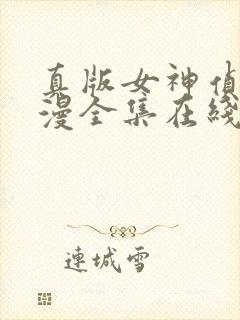 真版女神侦
漫全集在线
連城雪